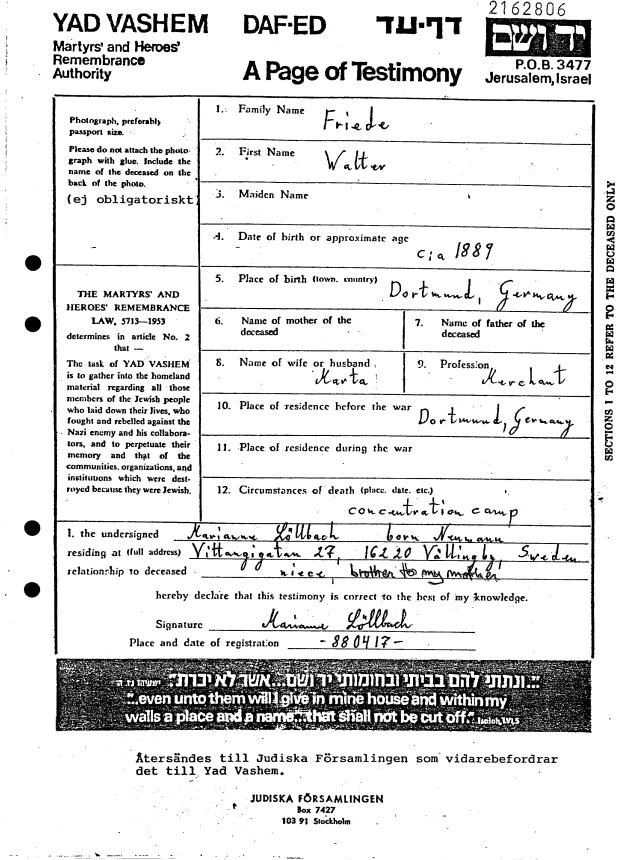 2162806
YAD VASHEM DAF-ED דף-עד יד ושם
Martyrs' and Heroes'
Remembrance
Authority
A Page of Testimony
P.O.B. 3477
Jerusalem, Israel
Photograph, preferably
passport size.
Please do not attach the photo-
graph with glue. Include the
name of the deceased on the
back of the photo.
(ej obligatoriskt)
THE MARTYRS' AND
HEROES' REMEMBRANCE
LAW, 5713—1953
determines in article No. 2
that —
The task of YAD VASHEM
is to gather into the homeland
material regarding all those
members of the Jewish people
who laid down their lives, who
fought and rebelled against the
Nazi enemy and his collabora-
tors, and to perpetuate their
memory and that of the
communities, organizations, and
institutions which were dest-
royed because they were Jewish.
1. Family Name
Friede
2. First Name
Walter
3. Maiden Name
4. Date of birth or approximate age
cia 1889
5. Place of birth (town, country)
Dortmund, Germany
6. Name of mother of the
deceased
7. Name of father of the
deceased
8. Name of wife or husband
Marta
9. Profession
Merchant
10. Place of residence before the war
Dortmund, Germany
11. Place of residence during the war
12. Circumstances of death (place, date, etc.)
concentration camp
SECTIONS 1 TO 12 REFER TO THE DECEASED ONLY
I, the undersigned Marianne Löllbach born Neumann
residing at (full address) Vittangigatan 27, 16220 Vällingby, Sweden
relationship to deceased niece, brother to my mother
hereby declare that this testimony is correct to the best of my knowledge.
Signature Marianne Löllbach
Place and date of registration -880417-
"...ונתתי להם בביתי ובחומותי יד ושם...אשר לא יכרת" ישעיהו נו ה
"...even unto them will I give in mine house and within my
walls a place and a name...that shall not be cut off." Isaiah, LVI, 5
Återsändes till Judiska Församlingen som vidarebefordrar
det till Yad Vashem.
JUDISKA FÖRSAMLINGEN
Box 7427
103 91 Stockholm